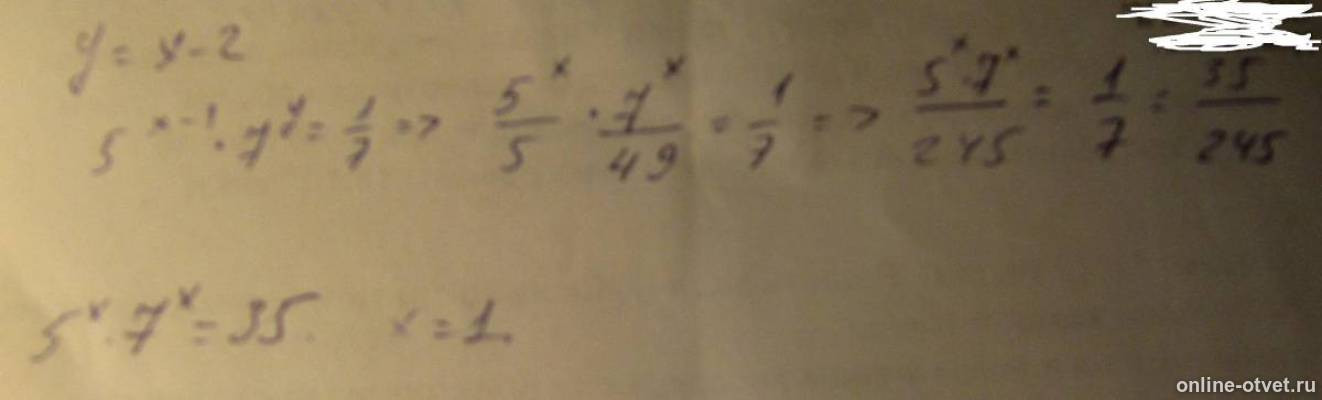 y = x - 2
5^{x-1} · 7^y = 1/7 => 5^x/5 · 7^x/49 = 1/7 => 5^x·7^x/245 = 1/7 = 35/245
5^x · 7^x = 35. x = 1.
online-otvet.ru